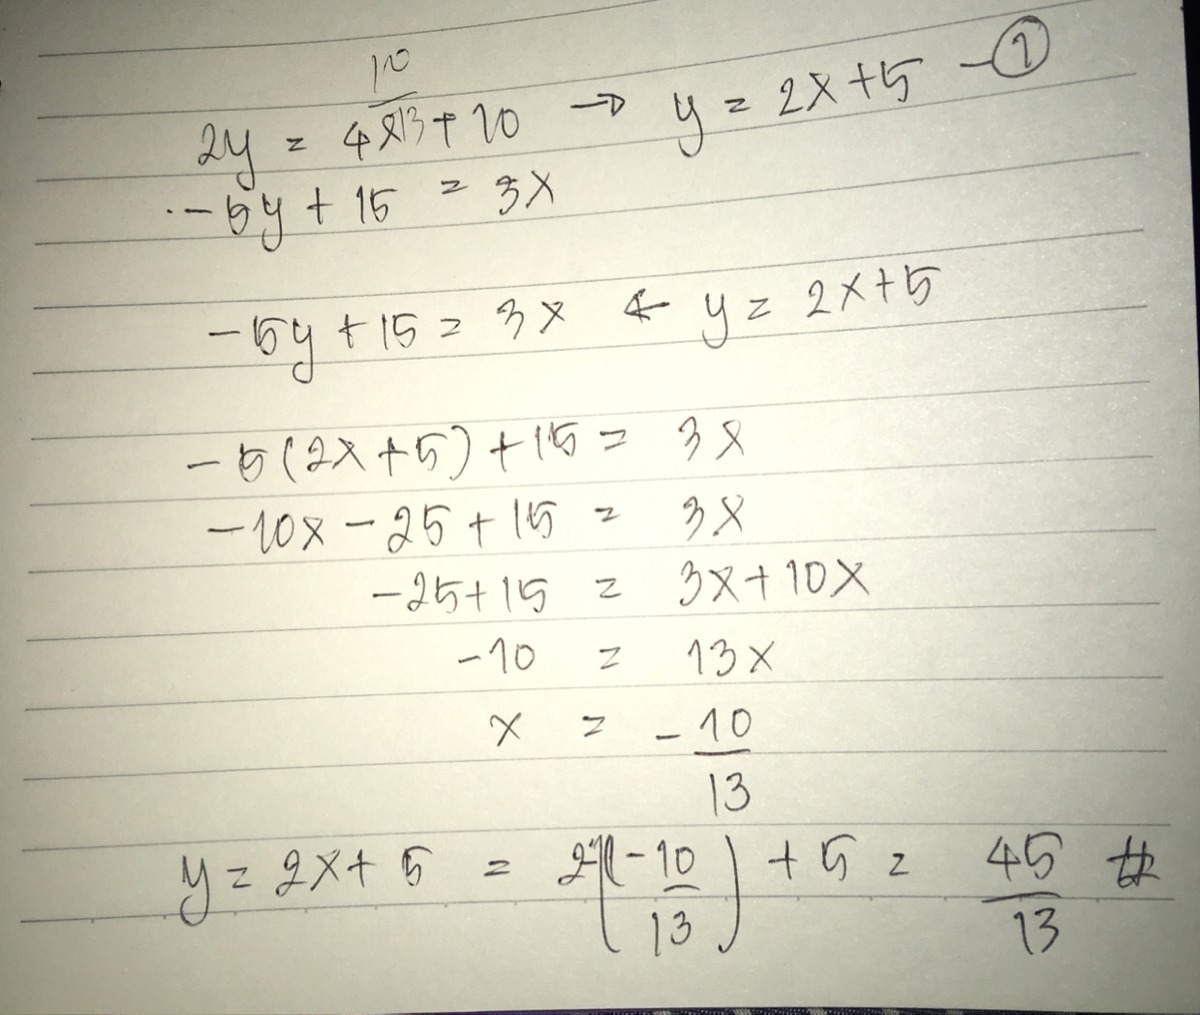 10
2y = 4x13 + 10 → y = 2x+5 — ①
-5y + 15 = 3x
-5y + 15 = 3x ← y = 2x+5
-5(2x+5) + 15 = 3x
-10x - 25 + 15 = 3x
-25+15 = 3x+10x
-10 = 13x
x = -10
13
y = 2x + 5 = 2(-10/13) + 5 = 45/13 #